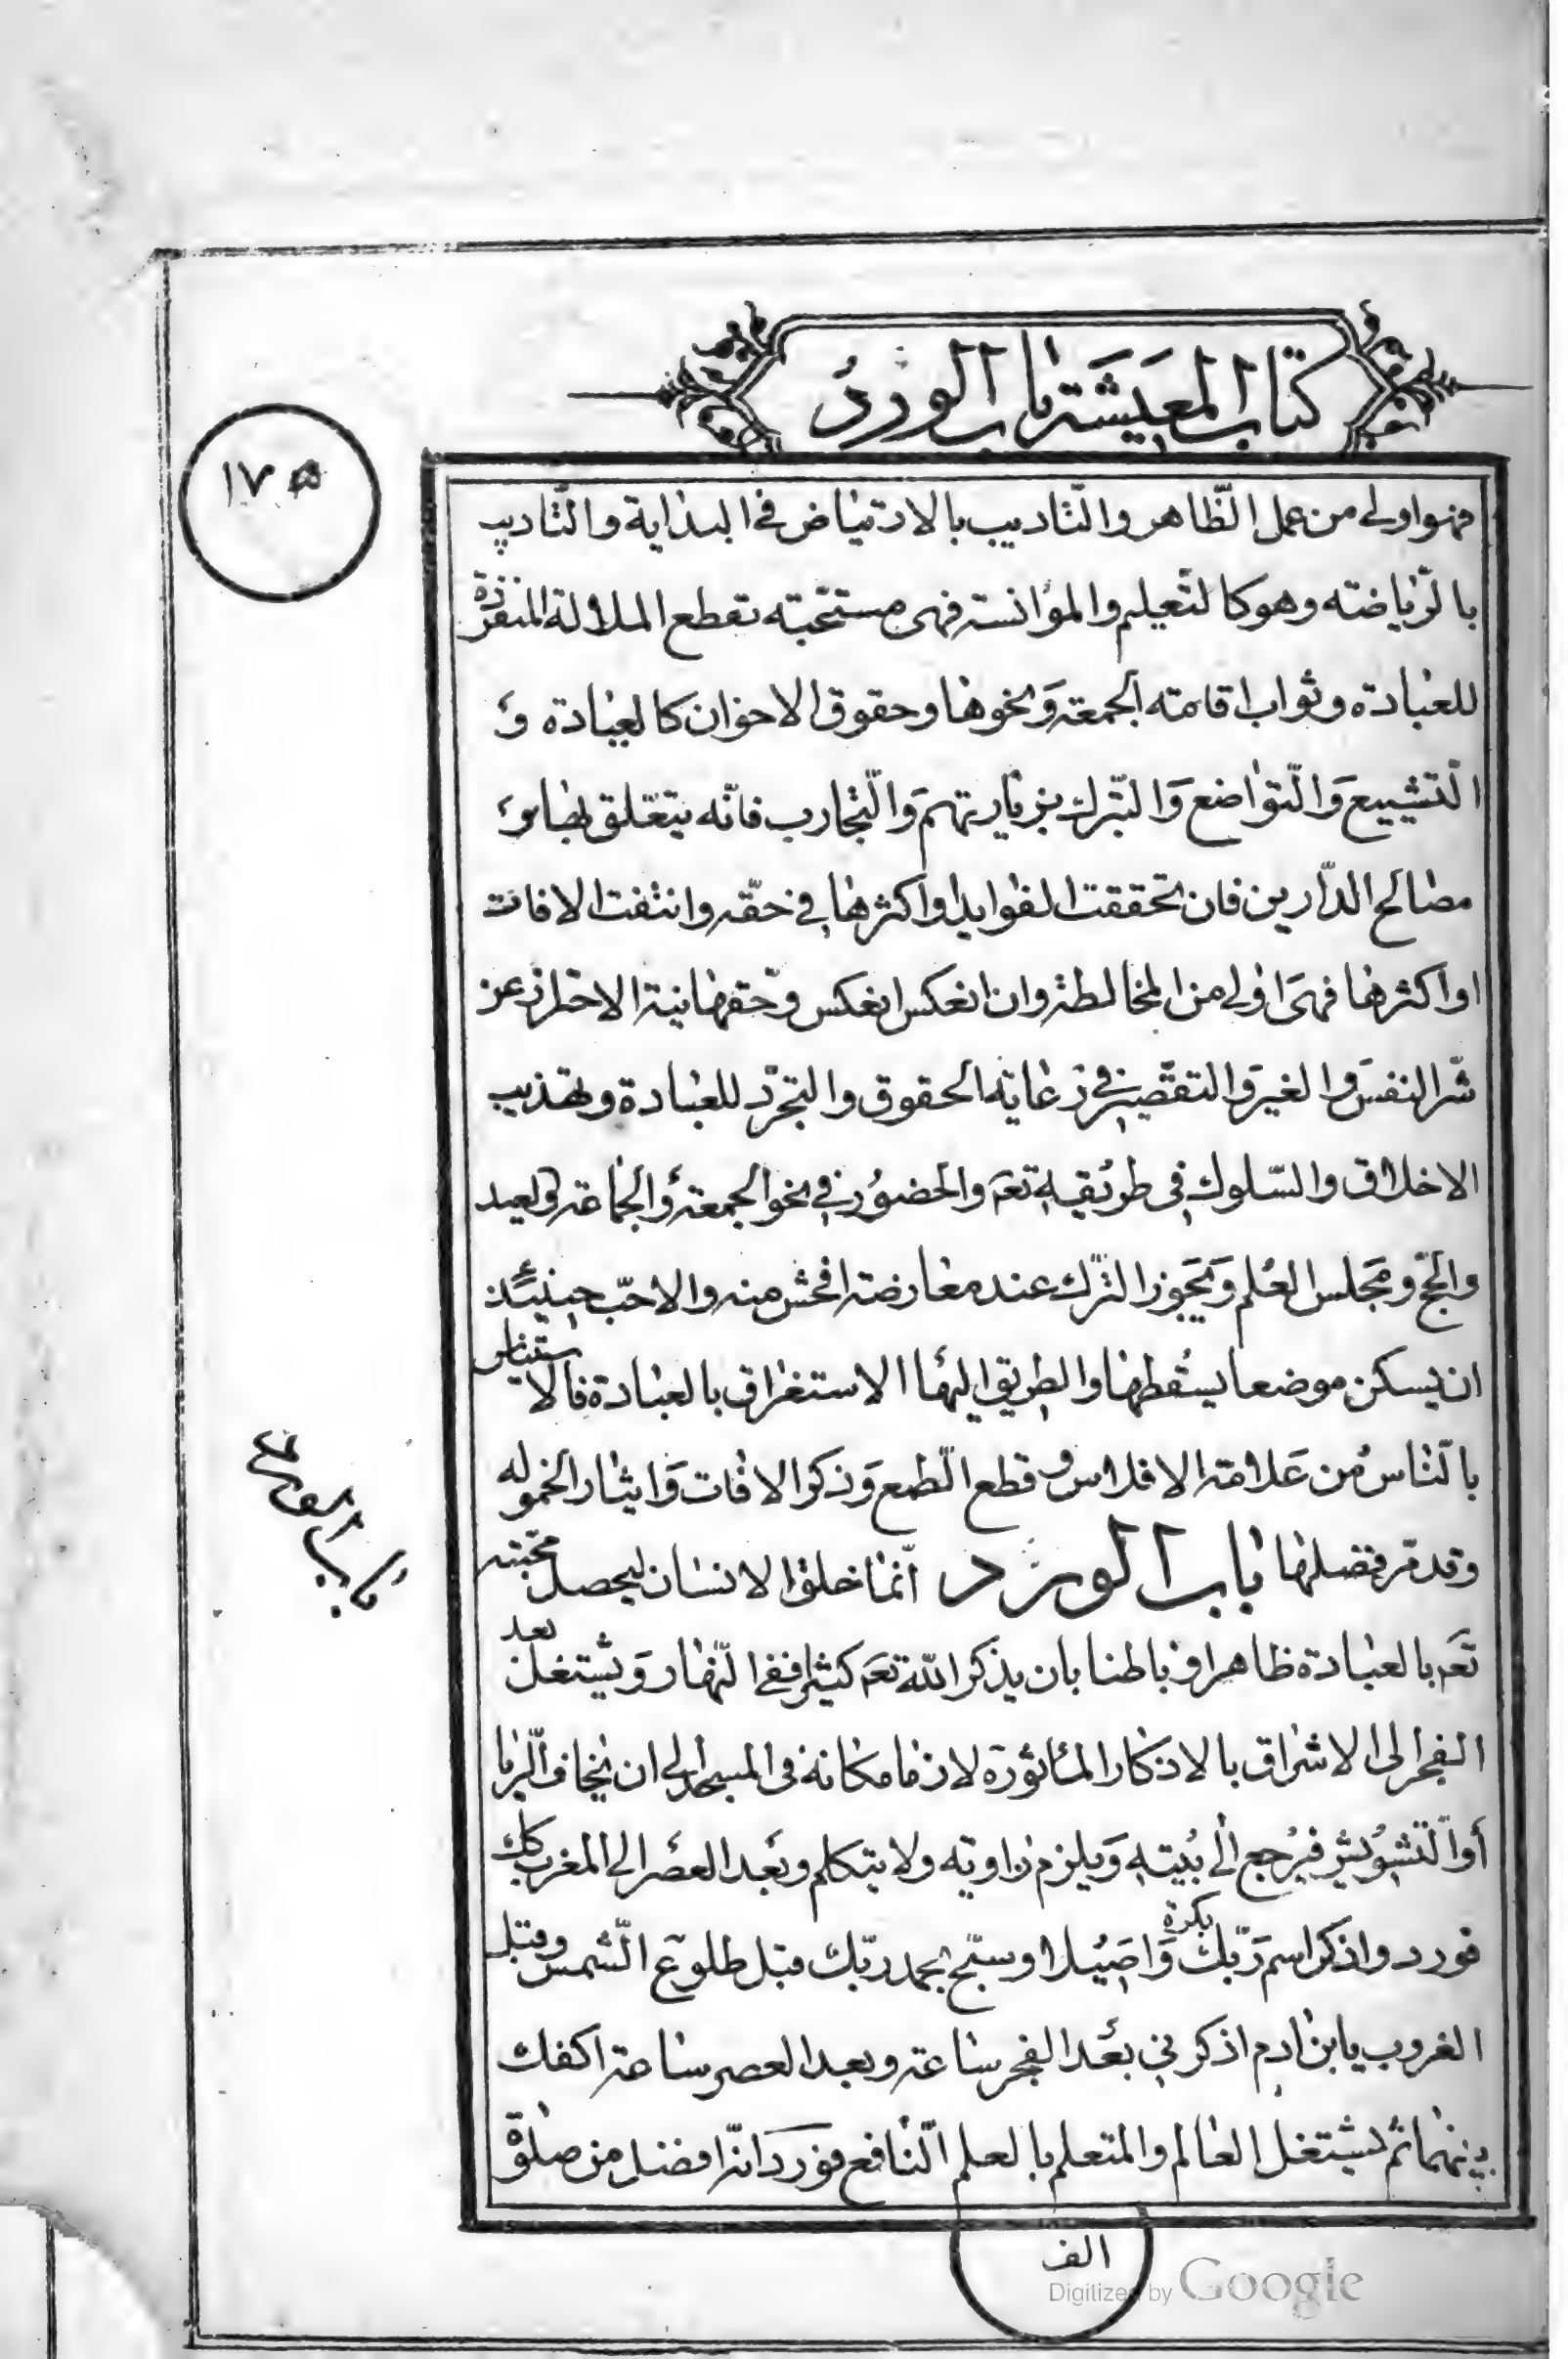 كتاب المعيشة باب الورد
١٧٥
فهو اولى من عمل الظّاهر والتّاديب بالارتياض فى البداية والتّاديب
بالرّياضته وهو كالتّعليم والمؤانسته فهى مستحبّته تقطع الملالة المنفرة
للعبادة وثواب اقامته الجمعته ونحوها وحقوق الاخوان كالعيادة و
التشييع والتّواضع والتّبرك بزيارتهم والتّجارب فانّه يتعّلق بها سرّ
مصالح الدّارين فان تحققت الفوايد او اكثرها فى حقّه وانتفت الافات
او اكثرها فهى اولى من المخالطته وان انعكس انعكس وحقها نيتة الاحتراز عن
شّر النفس والغير والتقّصير فى رعاية الحقوق والتجرّد للعبادة وتهذيب
الاخلاق والسّلوك فى طريقه تعم والحضور فى نحو الجمعته والجماعته والعيد
والحّج ومجلس العلم ويجوز الترّك عند معارضته افحش منه والاحبّ حينئذ
ان يسكن موضعا يسقطها والطريق اليها الاستغراق بالعبادة فالاستيناس
بالنّاس من علامته الافلاس وقطع الطّمع وذكر الافات وايثار الخموله
وقد مّر فضلها باب الورد انّما خلق الانسان ليحصل محبّته
تعم بالعبادة ظاهرا وباطنا بان يذكر الله تعم كثيرا ففى النّهار ويشتغل بعد
الفجر الى الاشراق بالاذكار المأثورة لازما مكانه فى المسجد الى ان يخاف الّريا
أو الّتشويش فيرجع الى بيته ويلزم زاويته ولا يتكلم وبعد العصر الى المغرب كك
فورد واذكر اسم ربّك بكرة واصيلا وسبّح بحمد ربّك قبل طلوع الشّمس وقبل
الغروب يابن ادم اذكرنى بعد الفجر ساعته وبعد العصر ساعته اكفك
بينهما ثم يشتغل العالم والمتعلم بالعلم النّافع فورد انّه افضل من صلوة
باب الورد
الف
Digitized by Google